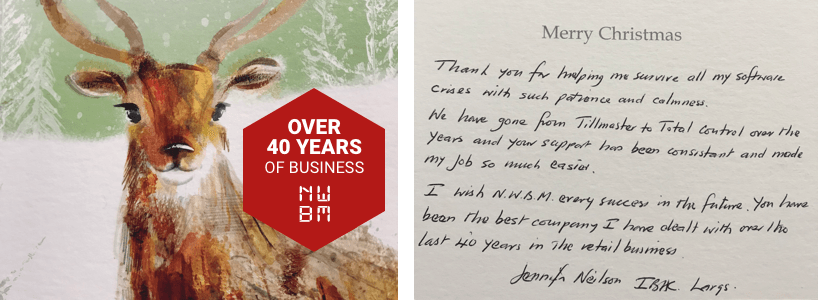 OVER
40 YEARS
OF BUSINESS
NW
BM
Merry Christmas
Thank you for helping me survive all my software
crises with such patience and calmness.
We have gone from Tillmaster to Total Control over the
years and your support has been consistant and made
my job so much easier.
I wish N.W.B.M. every success in the future. You have
been the best company I have dealt with over the
last 40 years in the retail business
Jennifer Neilson IBHK. Largs.